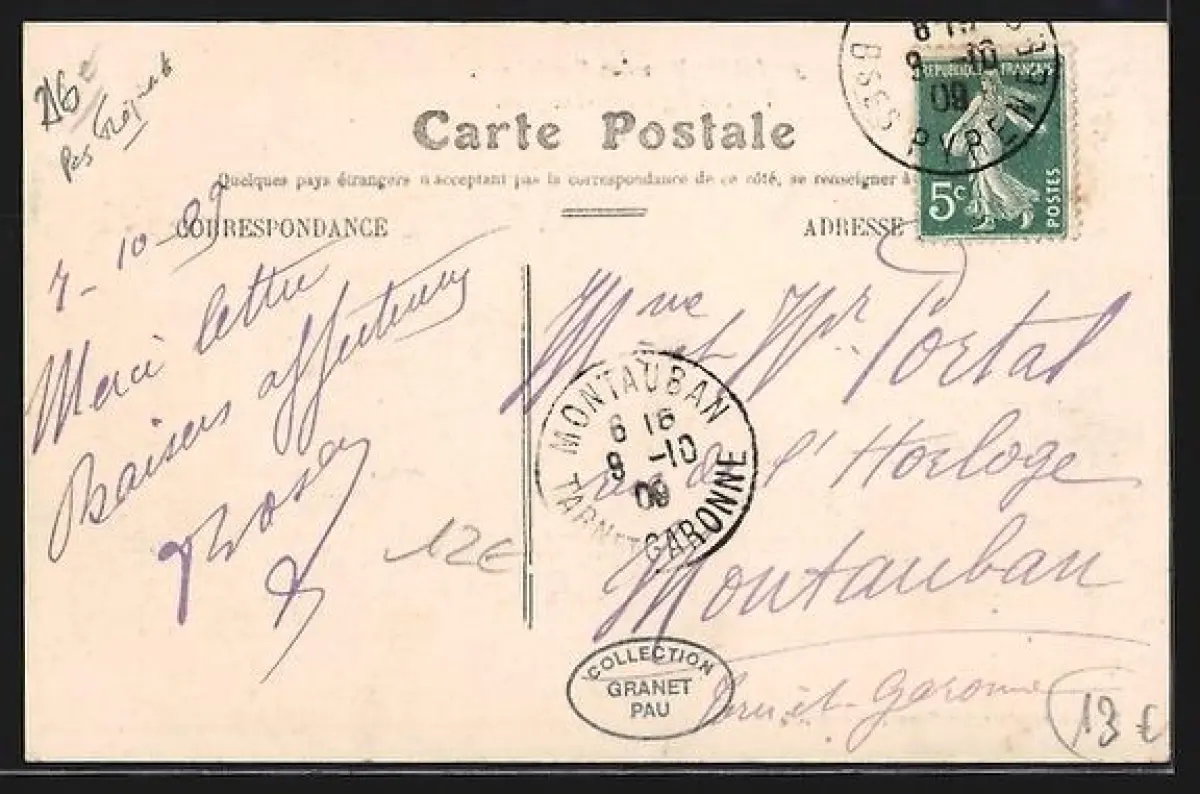 216
pas
Carte Postale
Quelques pays étrangers n'acceptant pas la correspondance de ce côté, se renseigner à
CORRESPONDANCE
ADRESSE
REPUBLIQUE FRANÇAISE
5c
POSTES
8-10
09
BSSES PYREN
7-10-09
Merci lettre
Baisers affectueux
Rosa
12€
Mme et Mr Portal
rue de l'Horloge
Montauban
Tarn-et-Garonne
MONTAUBAN
6 15
8 -10
09
TARN ET GARONNE
COLLECTION
GRANET
PAU
13 €